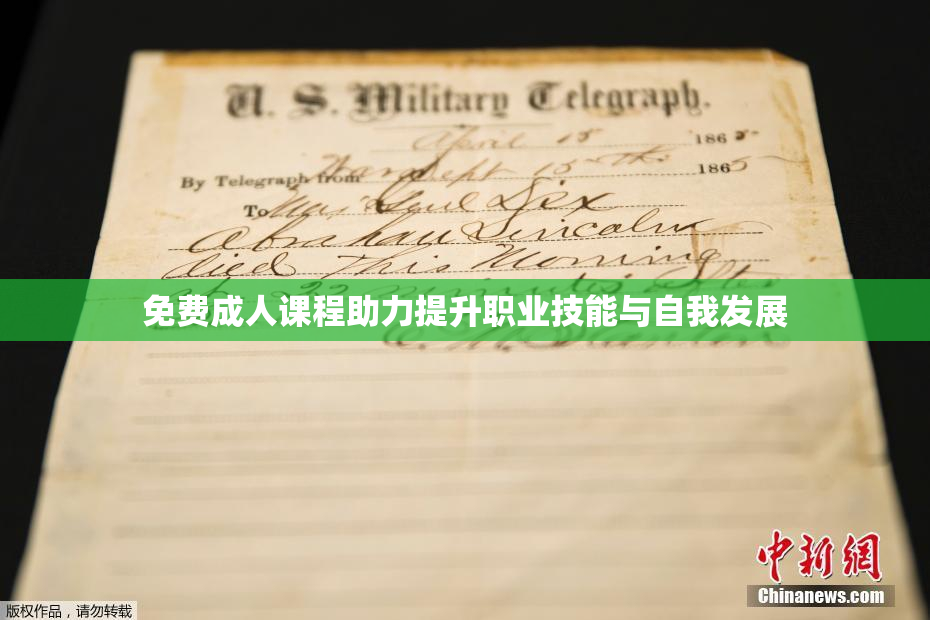 U. S. Military Telegraph.
April 15 1865
By Telegraph from War Dept 15th 1865
To Maj Genl Dix
Abraham Lincoln
died This Morning
at 22 minutes after
免费成人课程助力提升职业技能与自我发展
E. M. Stanton
中新网
Chinanews.com
版权作品，请勿转载